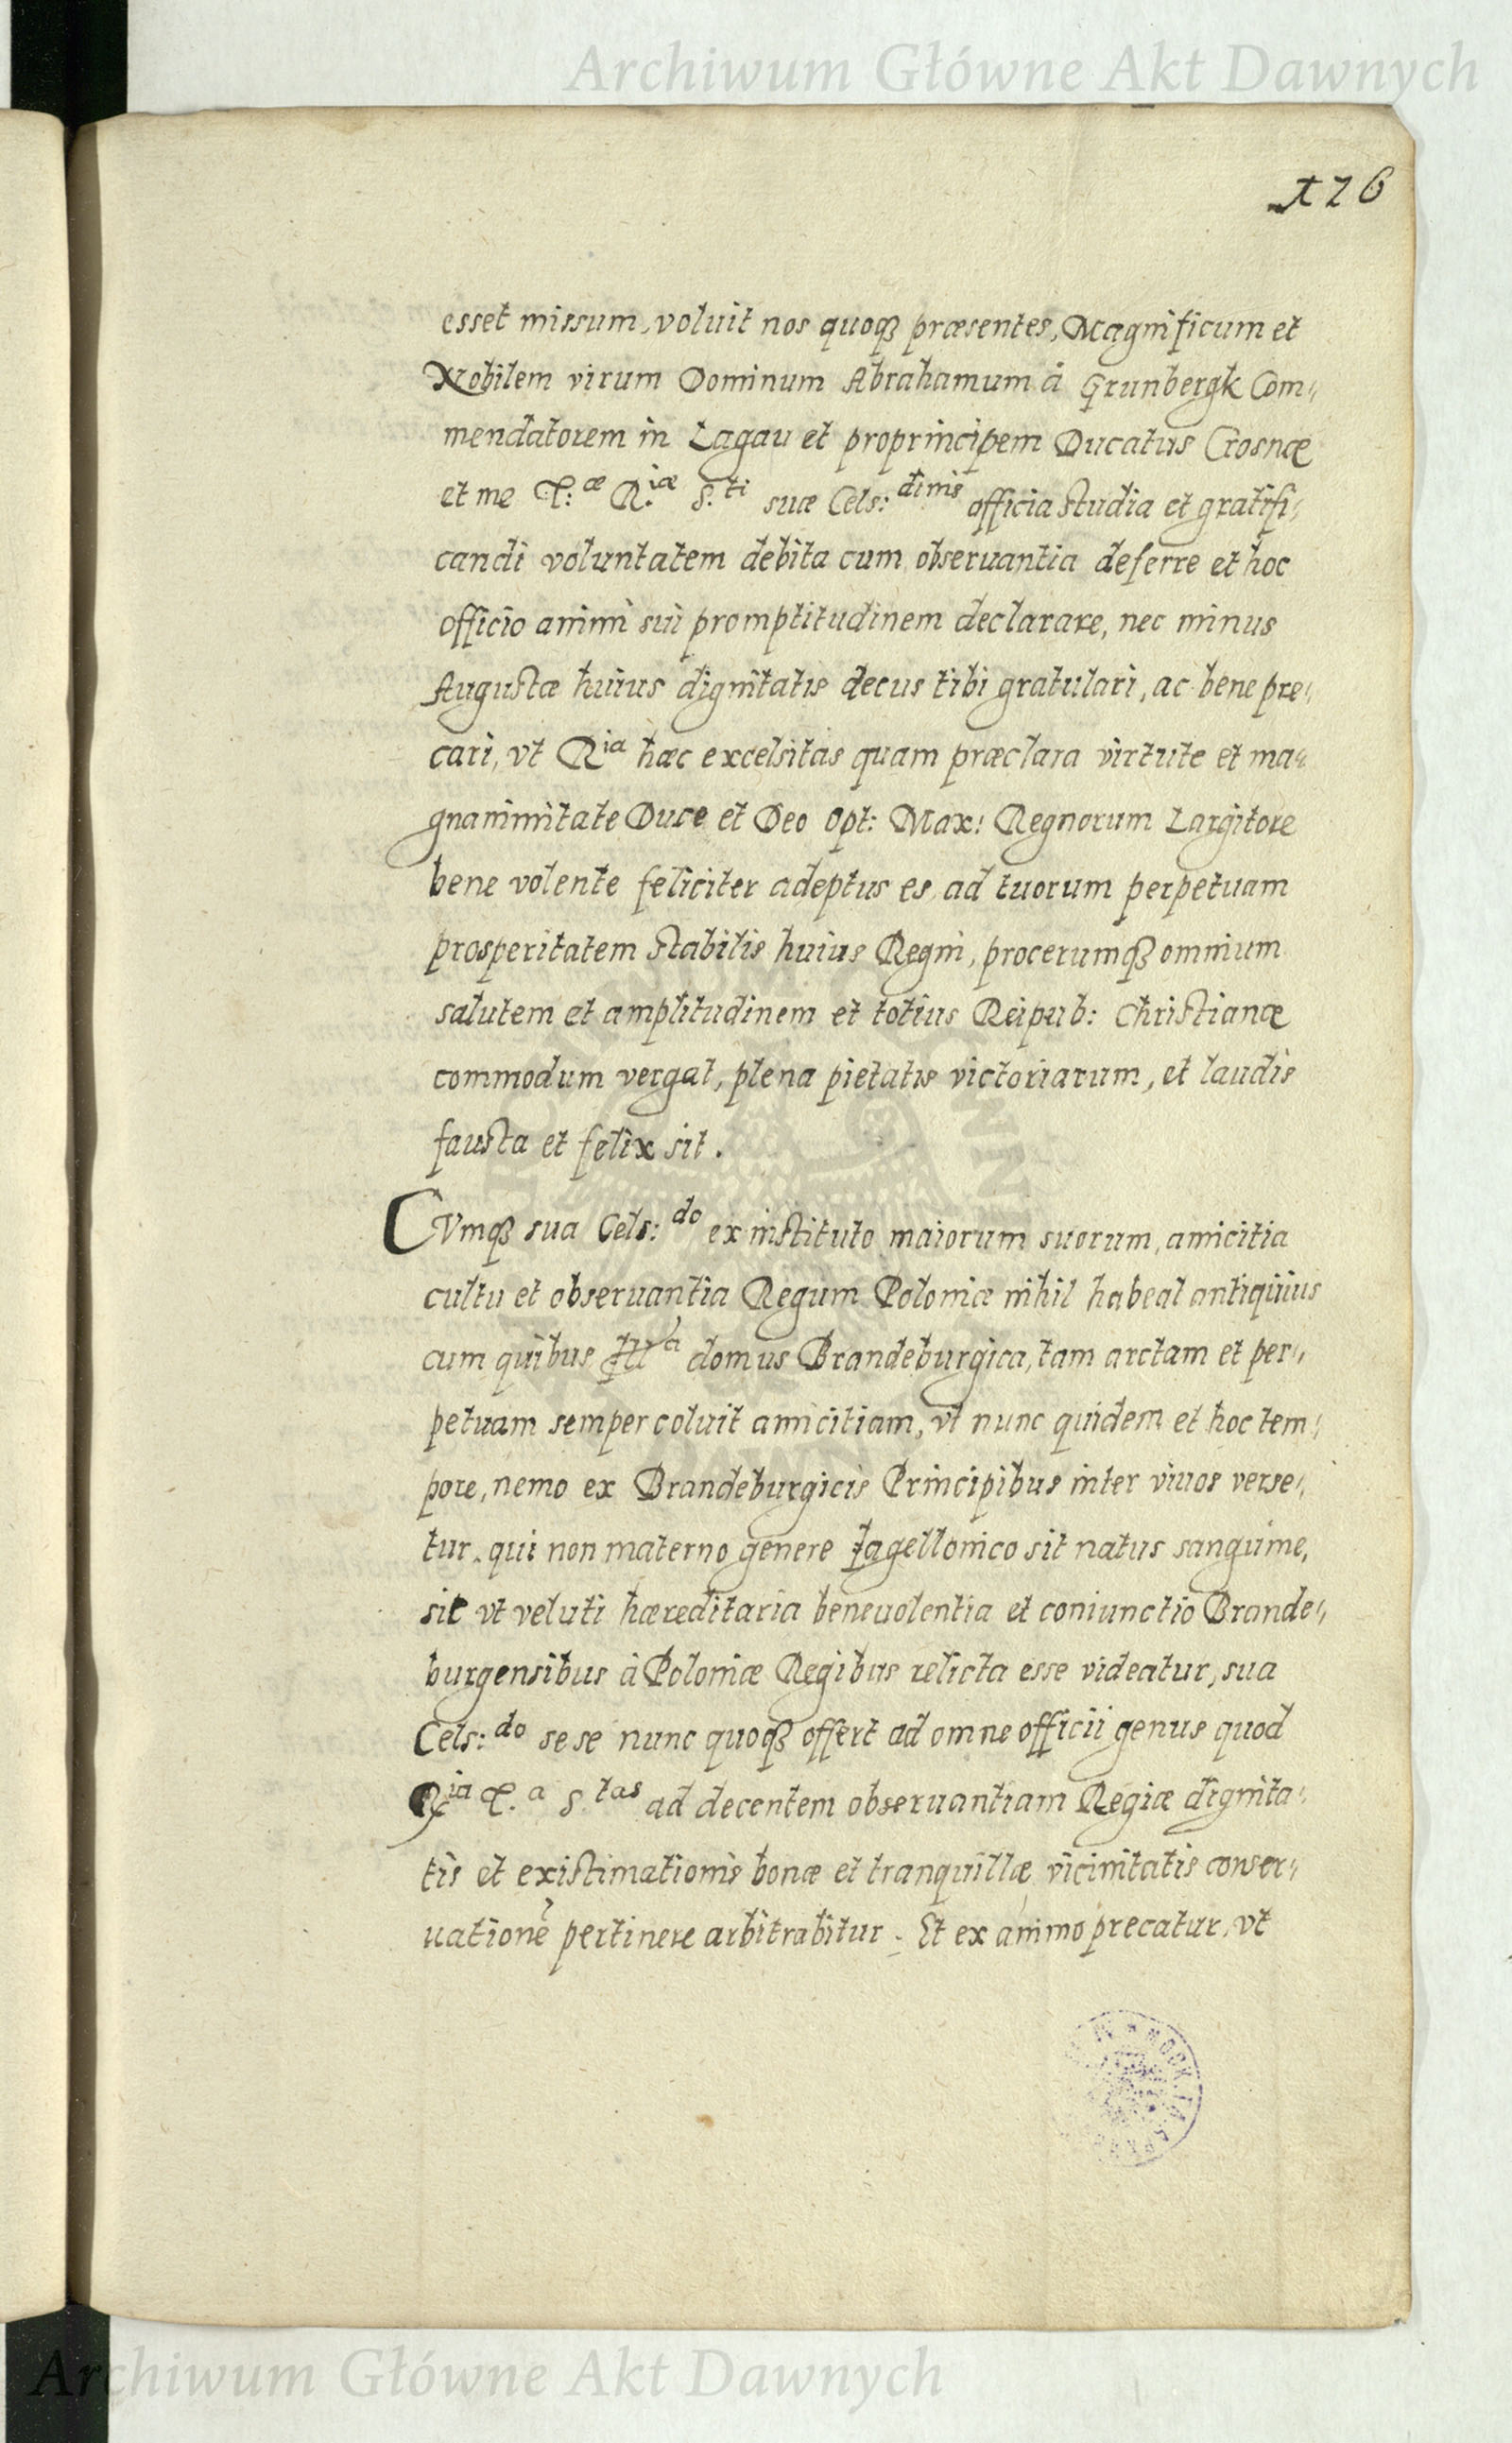 Archiwum Główne Akt Dawnych
126
esset missum, voluit nos quoqꝫ præsentes, Magnificum et
Nobilem virum Dominum Abrahamum à Grunbergk Com„
mendatorem in Lagau et proprincipem Ducatus Crosnæ
et me V.æ R.iæ S.ti suæ Cels:dinis officia studia et gratifi„
candi voluntatem debita cum obseruantia deferre et hoc
officio animi sui promptitudinem declarare, nec minus
Augustæ huius dignitatis decus tibi gratulari, ac bene pre„
cari, vt Ria hæc excelsitas quam præclara virtute et ma„
gnanimitate Duce et Deo Opt: Max: Regnorum Largitore
bene volente feliciter adeptus es, ad tuorum perpetuam
prosperitatem stabilis huius Regni, procerumqꝫ omnium
salutem et amplitudinem et totius Reipub: Christianæ
commodum vergat, plena pietatis victoriarum, et laudis
fausta et felix sit.
CVmqꝫ sua Cels:do ex instituto maiorum suorum, amicitia
cultu et obseruantia Regum Poloniæ nihil habeat antiquius
cum quibus Illa domus Brandeburgica, tam arctam et per„
petuam semper coluit amicitiam, vt nunc quidem et hoc tem„
pore, nemo ex Brandeburgicis Principibus inter viuos verse„
tur, qui non materno genere Jagellonico sit natus sanguine,
sic vt veluti hæreditaria beneuolentia et coniunctio Brande„
burgensibus à Poloniæ Regibus relicta esse videatur, sua
Cels:do se se nunc quoqꝫ offert ad omne officii genus quod
Ria V.a S.tas ad decentem obseruantiam Regiæ dignita„
tis et existimationis bonæ et tranquillæ vicinitatis conser„
uationẽ pertinere arbitrabitur. Et ex animo precatur, vt
Archiwum Główne Akt Dawnych